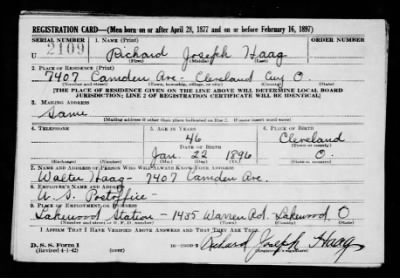 REGISTRATION CARD—(Men born on or after April 28, 1877 and on or before February 16, 1897)
SERIAL NUMBER 1. NAME (Print) ORDER NUMBER
2109 Richard Joseph Haag
(First) (Middle) (Last)
2. PLACE OF RESIDENCE (Print)
7407 Camden Ave - Cleveland Cuy O.
[THE PLACE OF RESIDENCE GIVEN ON THE LINE ABOVE WILL DETERMINE LOCAL BOARD
JURISDICTION; LINE 2 OF REGISTRATION CERTIFICATE WILL BE IDENTICAL]
3. MAILING ADDRESS
Same
[Mailing address if other than place indicated on line 2. If same insert word same]
4. TELEPHONE 5. AGE IN YEARS 6. PLACE OF BIRTH
46 Cleveland
DATE OF BIRTH (Town or county)
Jan. 22 1896 O.
(Exchange) (Number) (Mo.) (Day) (Yr.) (State or country)
7. NAME AND ADDRESS OF PERSON WHO WILL ALWAYS KNOW YOUR ADDRESS
Walter Haag - 7407 Camden Ave.
8. EMPLOYER'S NAME AND ADDRESS
U. S. Postoffice -
9. PLACE OF EMPLOYMENT OR BUSINESS
Lakewood Station - 1485 Warren Rd. Lakewood O
(Number and street or R. F. D. number) (Town) (County) (State)
I AFFIRM THAT I HAVE VERIFIED ABOVE ANSWERS AND THAT THEY ARE TRUE.
D. S. S. Form 1
(Revised 4-1-42) (over) Richard Joseph Haag